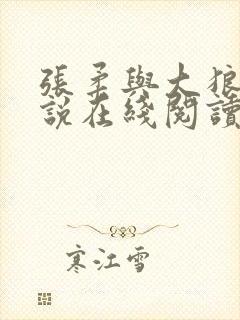 張柔與大狼
說在綫閱讀
寒江雪